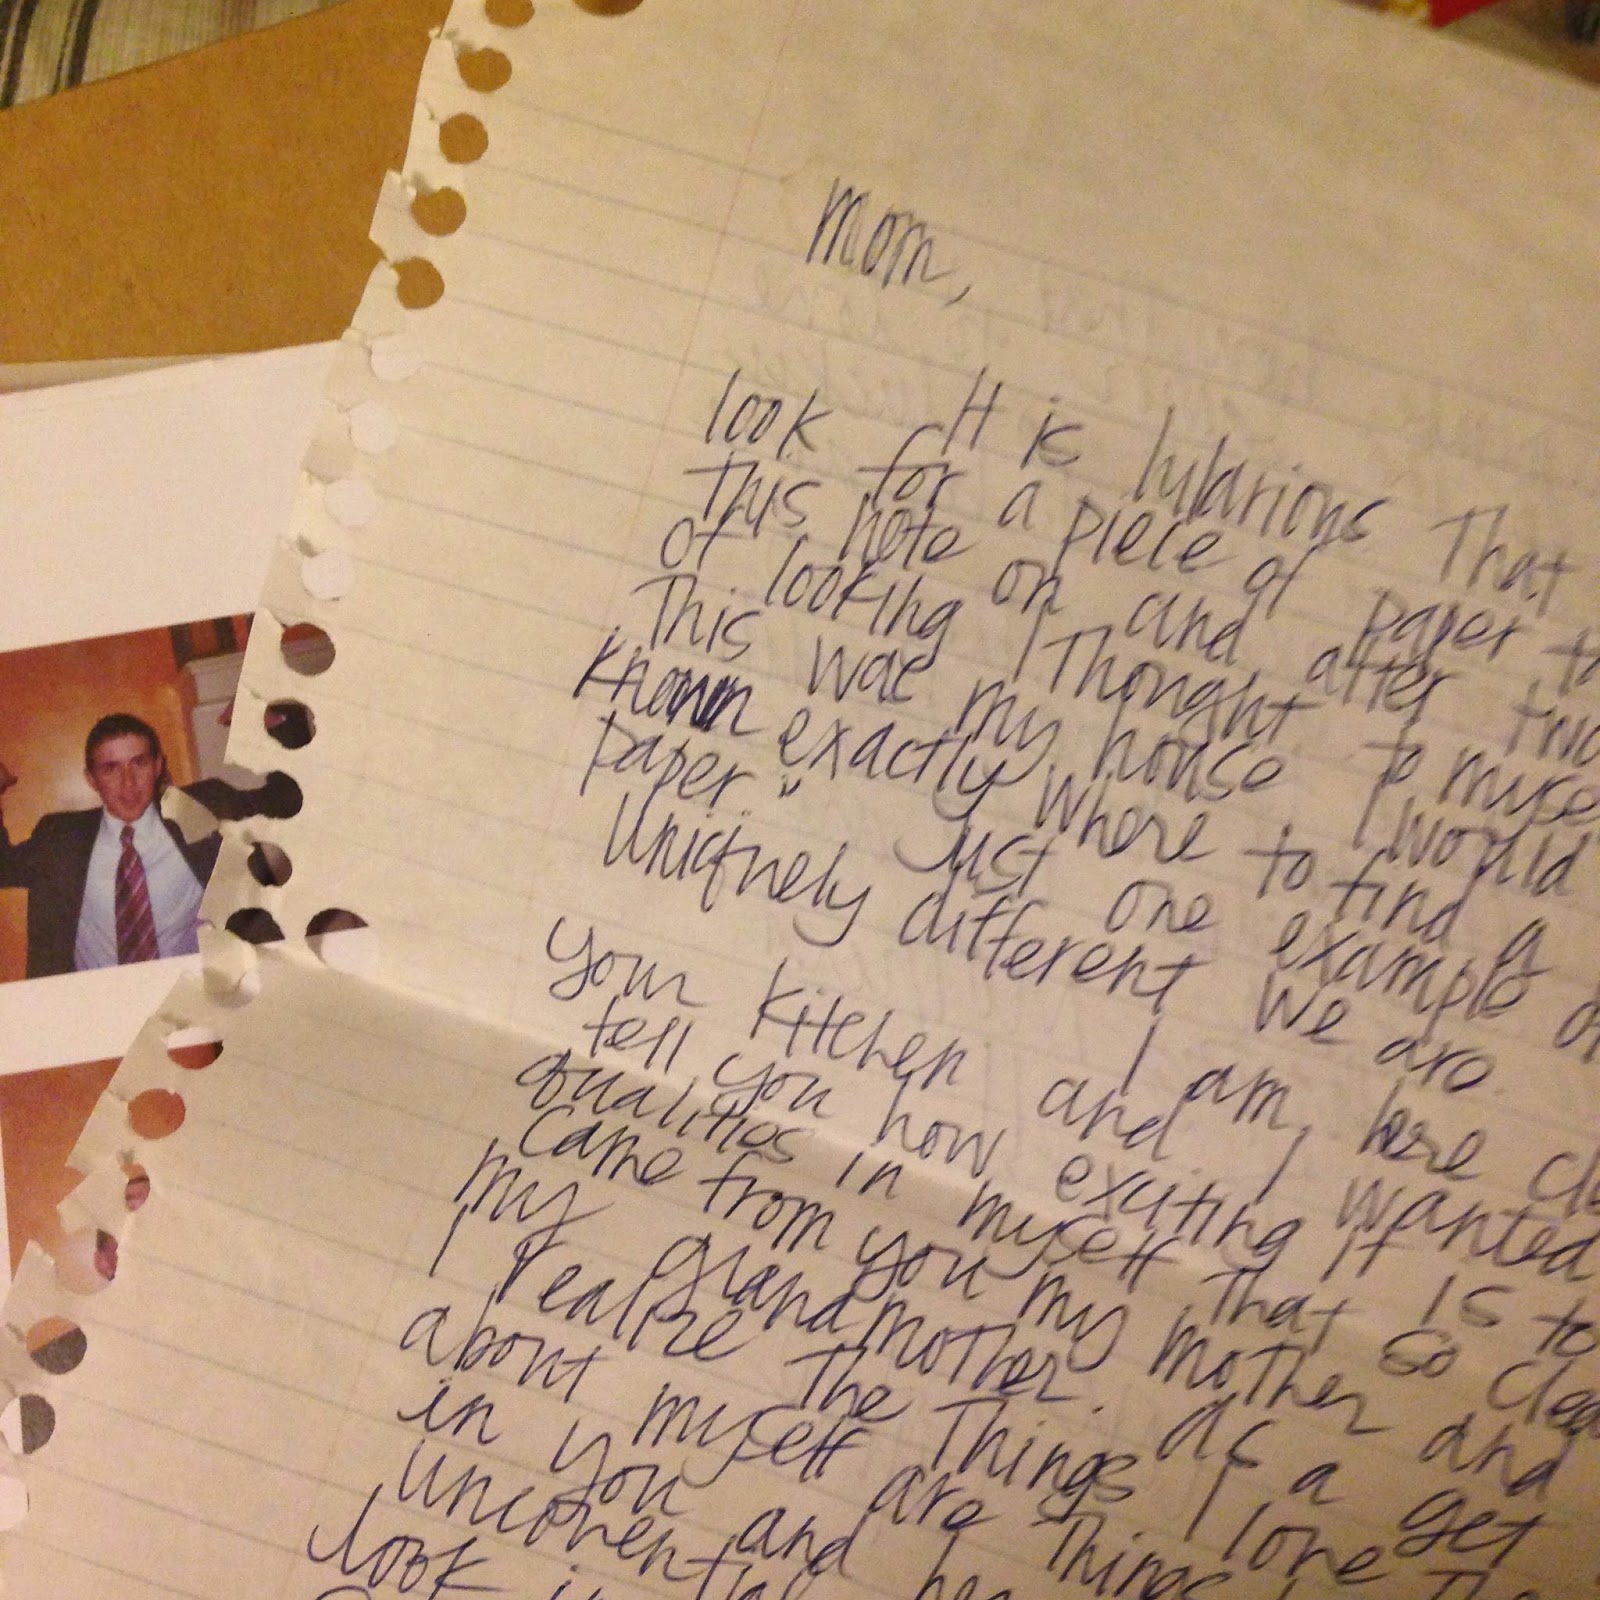 Mom,
It is hularious That
look for a piece of paper
This note on and after two
of looking I Thought to
This was my house I would
Known exactly where to find a
paper." Just one example
Uniquely different we are.
I am, here
Your Kitchen and I wanted
tell you how exciting it is to
qualities in myself That so
Came from you my mother and
my grandmother. As a get
I realize The Things I love
about myself are Things
in you and
look